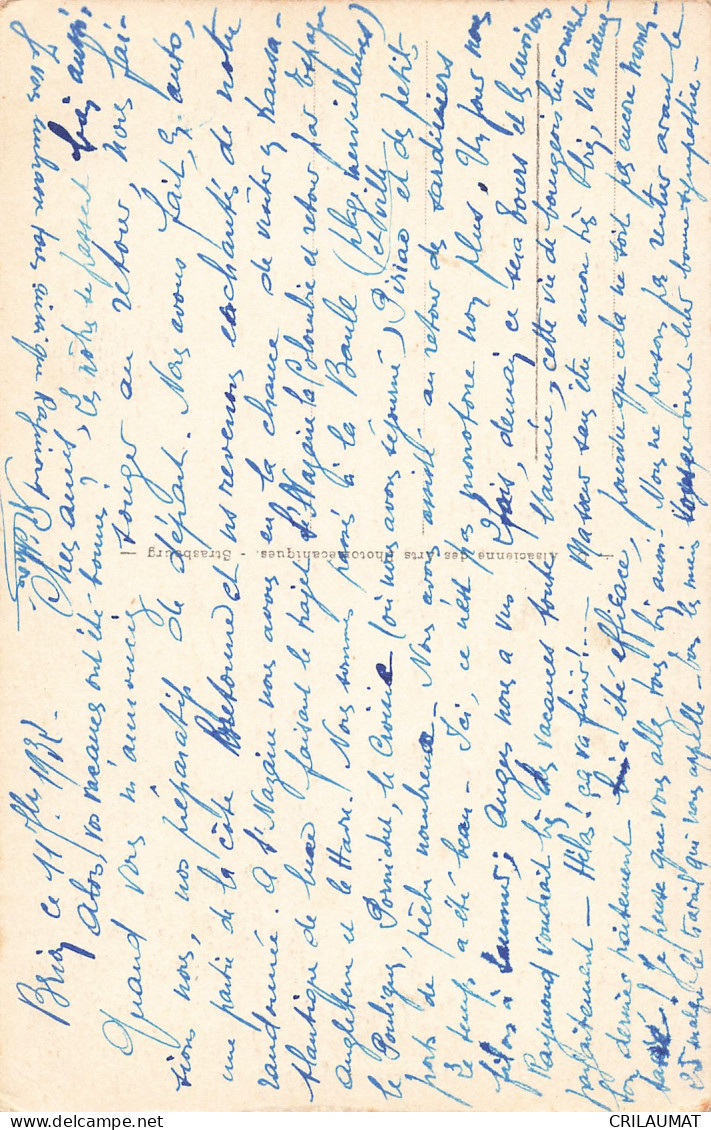 Brion ce 11 7bre 1932.
Chers amis
Alors, vos vacances ont été bonnes? Les nôtres se passent très bien aussi.
Quand vous m'annoncez songer au retour, nous fai-
sions nous, nos préparatifs de départ. Nous avons fait, en auto,
une partie de la côte Bretonne et ns revenons enchantés de notre
randonnée. A St Nazaire nous avons eu la chance de visiter un transa-
tlantique de luxe faisant le trajet St Nazaire la Colombie et retour par Espagne
Angleterre et le Havre. Nous sommes passés à la Baule (plage merveilleuse)
le Pouliguen, Pornichet, le Croisic (où nous avons séjourné) Piriac et ville et de petits
ports de pêche nombreux. Nous avons assisté au retour des sardiniers
Le temps a été beau. Ici, ce n'est pas monotone non plus. Un jour nous
filons à Saumur, Angers nous a vus mais, demain ce sera Tours et les environs
Raymond voudrait bien des vacances toute l'année, cette vie de bourgeois lui convient
parfaitement – Hélas! ça va finir!... Masseur sans être encore très bien, va mieux
son dernier traitement a été efficace, pourvu que cela ne soit pas encore momen-
tané! Je pense que vous allez tous bien aussi. Nous ne pensons pas rentrer avant le
25 malgré le travail qui nous appelle – Tous les miens vous envoient leur bonne sympathie –
Je vous embrasse tous ainsi que Raymond
Alsacienne des Arts Photomécaniques. - Strasbourg
CRILAUMAT